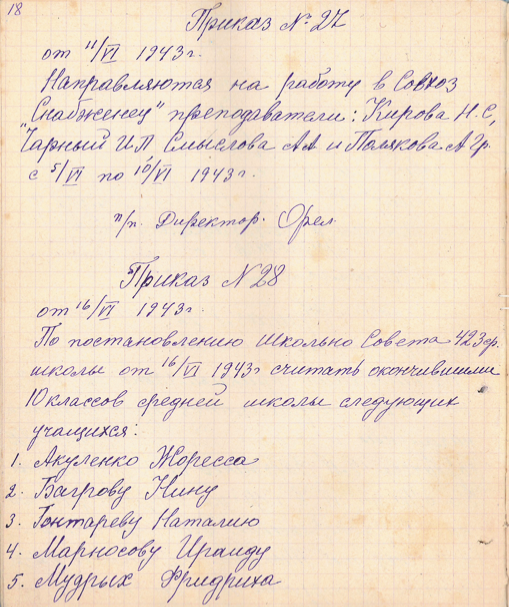 18
Приказ № 27
от 11/VI 1943 г.
Направляются на работу в Совхоз
"Снабженец" преподаватели: Кирова Н. С,
Чарный И П Смыслова А А и Полякова А Гр.
с 5/VI по 10/VI 1943 г.
п/п. Директор. Орел
Приказ N 28
от 16/VI 1943 г.
По постановлению Школьно Совета 423 ср.
школы от 16/VI 1943 г считать окончившими
10 классов средней школы следующих
учащихся:
1. Акуленко Жоресса
2. Багрову Нину
3. Гонтареву Наталию
4. Марносову Ираиду
5. Мудрых Фридриха